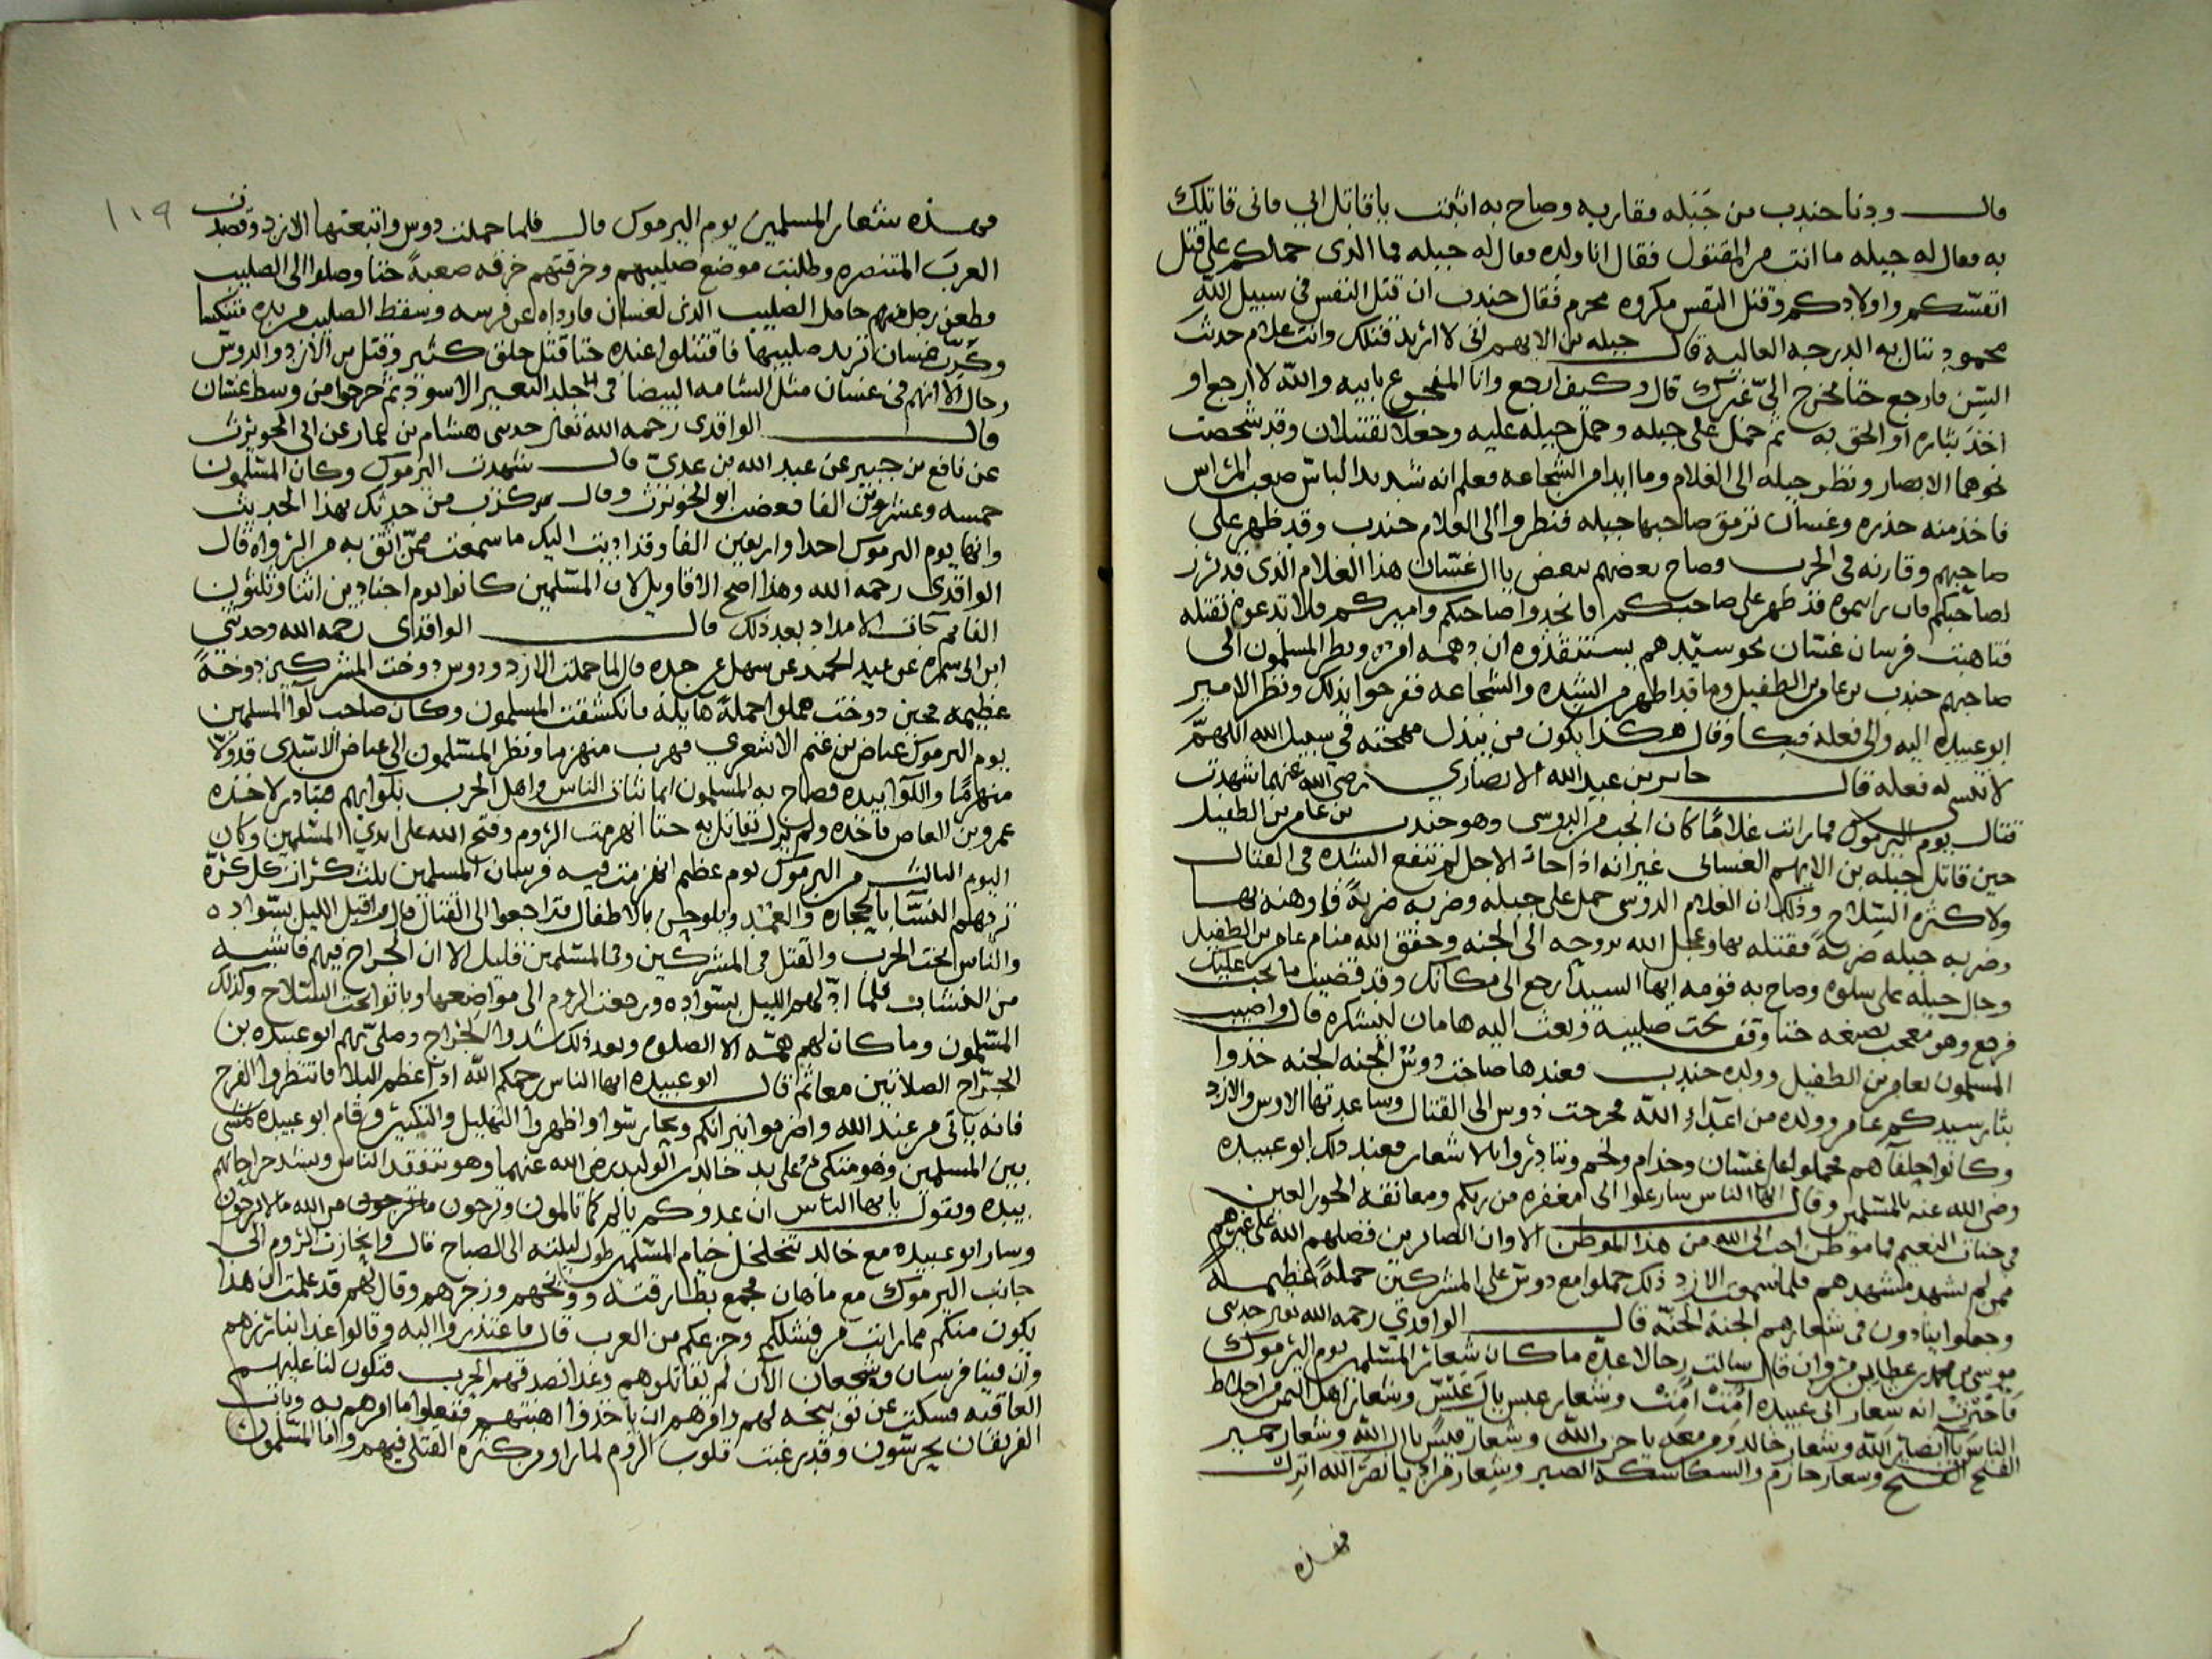 قال ودنا جندب من جبله فقاربه وصاح به اثبت يا قاتل ابي فاني قاتلك
به فقال له جبله ما انت من المقتول فقال انا ولده فقال له جبله فما الذي حملكم على قتل
انفسكم واولادكم وقتل النفس مكروه محرم فقال جندب ان قتل النفس في سبيل الله
محمود ننال به الدرجه العاليه قال جبله بن الايهم اني لا اريد قتلك وانت غلام حدث
السن فارجع حتا يخرج الي غيرك قال وكيف ارجع وانا المفجوع بابيه والله لا ارجع او
اخذ بثاره او الحق به ثم حمل على جبله وحمل جبله عليه وجعلا يقتتلان وقد شخصت
نحوهما الابصار ونظر جبله الى الغلام وما ابدا من الشجاعه فعلم انه شديد الباس صعب المراس
فاخذ منه حذره وغسان ترمق صاحبها جبله فنظروا الى الغلام جندب وقد ظهر على
صاحبهم وقارنه في الحرب وصاح بعضهم ببعض يا ال غسان هذا الغلام الذي قد برز
لصاحبكم فان تركتموه قد ظهر على صاحبكم فانجدوا صاحبكم واميركم فلا تدعوه تقتله
فتاهبت فرسان غسان نحو سيدهم يستنقذوه ان دهمه امر ونظر المسلمون الى
صاحبهم جندب بن عامر بن الطفيل وما قد اظهر من الشده والشجاعه ففرحوا بذلك ونظر الامير
ابو عبيده اليه والى فعله فبكا وقال هكذا يكون من يبذل مهجته في سبيل الله اللهم
لا تنسى له فعله قال جابر بن عبد الله الانصاري رضي الله عنهما شهدت
قتال يوم اليرموك فما رايت غلامًا كان انجب من الدوسي وهو جندب بن عامر بن الطفيل
حين قاتل جبله بن الايهم الغساني غير انه اذا حان الاجل لم تنفع الشده في القتال
ولا كثره السلاح وذلك ان الغلام الدوسي حمل على جبله وضربه ضربة فاوهنه بها
وضربه جبله ضربة فقتله بها وعجل الله بروحه الى الجنه وحقق الله منام عامر بن الطفيل
وجال جبله على سلوه وصاح به قومه ايها السيد ارجع الى مكانك وقد قضيت ما يجب عليك
فرجع وهو معجب بصنعه حتا وقف تحت صليبه وبعث اليه هامان ليشكره قال واصيب
المسلمون بعامر بن الطفيل وولده جندب فعندها صاحت دوس الجنه الجنه خذوا
بثار سيدكم عامر وولده من اعداء الله فخرجت دوس الى القتال وساعدتها الاوس والازد
وكانوا حلفآ هم فحملوا على غسان وجذام ولخم وتنادوا بالاشعار فعند ذلك ابو عبيده
رضي الله عنه بالمسلمين وقال ايها الناس سارعوا الى مغفره من ربكم ومعانقه الحور العين
في جنات النعيم فما موطن احب الى الله من هذا الموطن الا وان الصابرين فضلهم الله على غيرهم
ممن لم يشهد مشهدهم فلما سمعوا الازد ذلك حملوا مع دوس على المشركين حملة عظيمة
وجعلوا ينادون في شعارهم الجنه الجنه قال الواقدي رحمه الله تعالى حدثني
موسى بن محمد بن عطا بن مروان قال سالت رجالا عده ما كان شعار المسلمين يوم اليرموك
فاخبرت انه شعار ابي عبيده امت امت وشعار عبس يال عبس وشعار اهل اليمن من اخلاط
الناس يا انصار الله وشعار خالد ومن معه يا حزب الله وشعار قيس يا ال الله وشعار حمير
الفتح الفتح وشعار حازم والسكاسكه الصبر وشعار مراد يا نصر الله انزل
فهذه
١١٩
فهذه شعار المسلمين يوم اليرموك قال فلما حملت دوس واتبعتها الازد وقصدت
العرب المتنصره وطلبت موضع صليبهم وخرقتهم خرقه صعبة حتا وصلوا الى الصليب
وطعن رجل منهم حامل الصليب الذي لغسان فارداه عن فرسه وسقط الصليب من يده منكسا
وكرت غسان تريد صليبها فاقتتلوا عنده حتا قتل خلق كثير وقتل من الازد والدوس
رجال الا انهم في غسان مثل الشامه البيضا في جلد البعير الاسود ثم خرجوا من وسط غسان
قال الواقدي رحمه الله تعالى حدثني هشام بن عمار عن ابي الحويرث
عن نافع بن جبير عن عبد الله بن عدي قال شهدت اليرموك وكان المسلمون
خمسه وعشرين الفا فغضب ابو الحويرث وقال كذب من حدثك بهذا الحديث
وانما يوم اليرموك احدا واربعين الفا وقد اديت اليك ما سمعت ممن اثق به من الرواه قال
الواقدي رحمه الله وهذا اصح الاقاويل لان المسلمين كانوا يوم اجنادين اثنا وثلثون
الفا ثم جات الامداد بعد ذلك قال الواقدي رحمه الله وحدثني
ابن ابي سمره عن عبد الحميد عن سهل عن جده قال لما حملت الازد ودوس دوخت المشركين دوخة
عظيمه فحين دوخت حملوا حملة هايلة فانكشفت المسلمون وكان صاحب لوا المسلمين
يوم اليرموك عياض بن غنم الاشعري فهرب منهزما ونظر المسلمون الى عياض الاشدي قد ولا
منهزمًا واللوا بيده فصاح به المسلمون انما ثبات الناس واهل الحرب بلوايهم فبادر لاخذه
عمرو بن العاص فاخذه ولم يزل يقاتل به حتا انهزمت الروم وفتح الله على ايدي المسلمين وكان
اليوم الثالث من اليرموك يوم عظيم انهزمت فيه فرسان المسلمين ثلث كرات كل كرة
تردهم النسا بالحجاره والعمد ويلوحن بالاطفال فتراجعوا الى القتال قال واقبل الليل بسواده
والناس تحت الحرب والقتل في المشركين وفي المسلمين قليل الا ان الجراح فيهم فاشيه
من النشاب فلما ادلهم الليل بسواده ورجعت الروم الى مواضعها وباتوا تحت السلاح وكذلك
المسلمون وما كان لهم همه الا الصلوه وبعد ذلك شدوا الجراح وصلى بهم ابو عبيده بن
الجراح الصلاتين معا ثم قال ابو عبيده ايها الناس رحمكم الله اذا اعظم البلا فانتظروا الفرج
فانه ياتي من عند الله واضرموا نيرانكم وتحارسوا واظهروا التهليل والتكبير وقام ابو عبيده يمشي
بين المسلمين وهو متكئ على يد خالد بن الوليد رضي الله عنهما وهو يتفقد الناس ويشد جراحاتهم
بيده ويقول يا ايها الناس ان عدوكم يالم كما تالمون وترجون من الله ما لا يرجون
وسار ابو عبيده مع خالد يتخلخل خيام المسلمين طول ليلته الى الصباح قال وانحازت الروم الى
جانب اليرموك مع ماهان فجمع بطارقته ووبخهم وزجرهم وقال لهم قد علمت ان هذا
يكون منكم مما رايت من فشلكم وجزعكم من العرب قال فاعتذروا اليه وقالوا غدا نبارزهم
وان فينا فرسان وشجعان الآن لم يقاتلوهم وغدا نصدقهم الحرب فتكون لنا عليهم
العاقبه فسكت عن توبيخه لهم وامرهم ان ياخذوا اهبتهم ففعلوا ما امرهم به وبات
الفريقان يحرسون وقد رعبت قلوب الروم لما راوا من كثره القتلى فيهم واما المسلمون